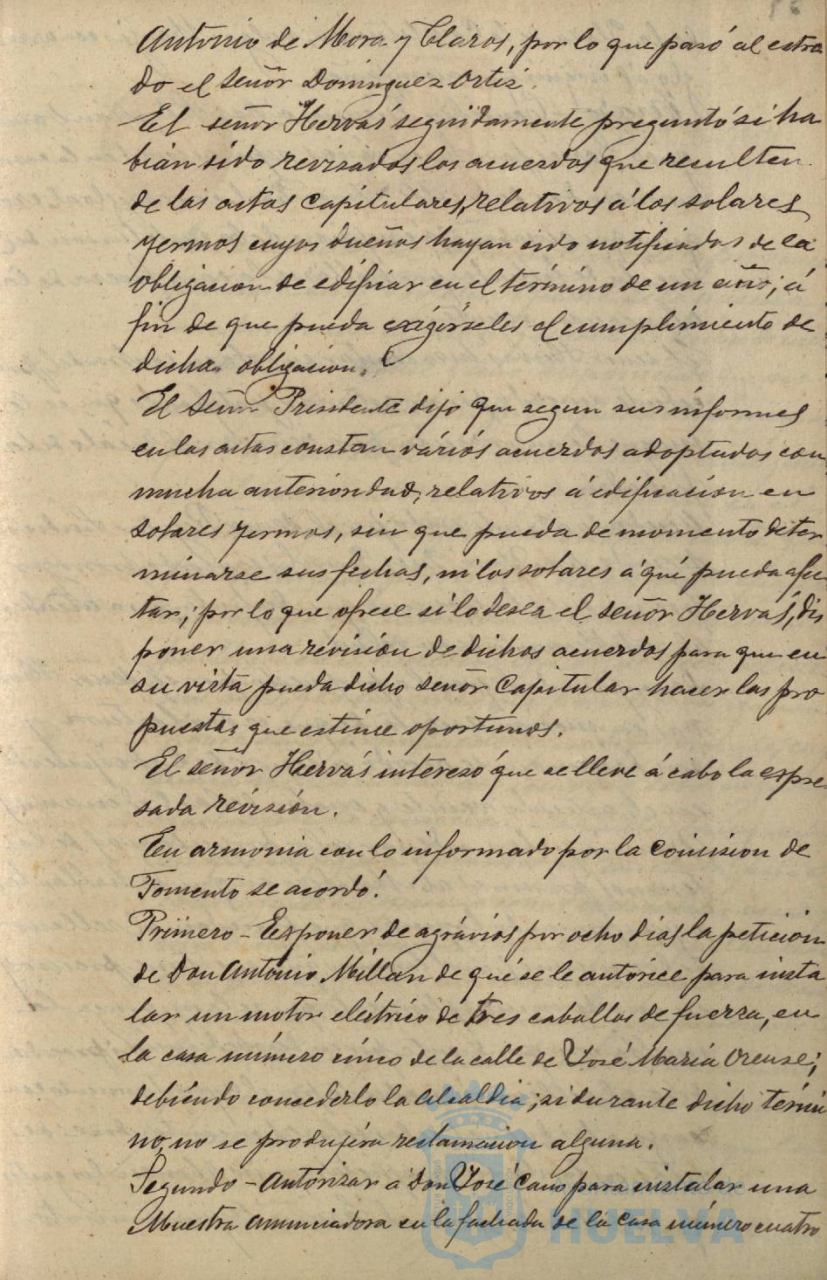 56
Antonio de Mora y Claros, por lo que pasó al estra
do el señor Dominguez Ortiz.
El señor Hervás seguidamente preguntó si ha
bián sido revisados los acuerdos que resulten
de las actas capitulares, relativos á los solares
yermos cuyos dueños hayan sido notificados de la
obligacion de edificar en el término de un año; á
fin de que pueda exigírseles el cumplimiento de
dicha obligacion.
El Señor Presidente dijo que segun sus informes
en las actas constan vários acuerdos adoptados con
mucha anterioridad, relativos á edificación en
solares yermos, sin que pueda de momento deter
minarse sus fechas, ni los solares á qué pueda afec
tar; por lo que ofrece si lo desea el señor Hervás, dis
poner una revisión de dichos acuerdos para que en
su vista pueda dicho señor Capitular hacer las pro
puestas que estime oportunas.
El señor Hervás interesó que se lleve á cabo la espre
sada revisión.
En armonia con lo informado por la Comision de
Fomento se acordó:
Primero - Esponer de agrávios por ocho dias la petición
de Don Antonio Millan de qué se le autorice para insta
lar un motor eléctrico de tres caballos de fuerza, en
la casa número cinco de la calle de José Maria Orense;
debiéndo concederlo la alcaldia; si durante dicho térmi
no, no se produjera reclamacion alguna.
Segundo - Autorizar á Don José Cano para instalar una
Muestra anunciadora en la fachada de la casa número cuatro
HUELVA